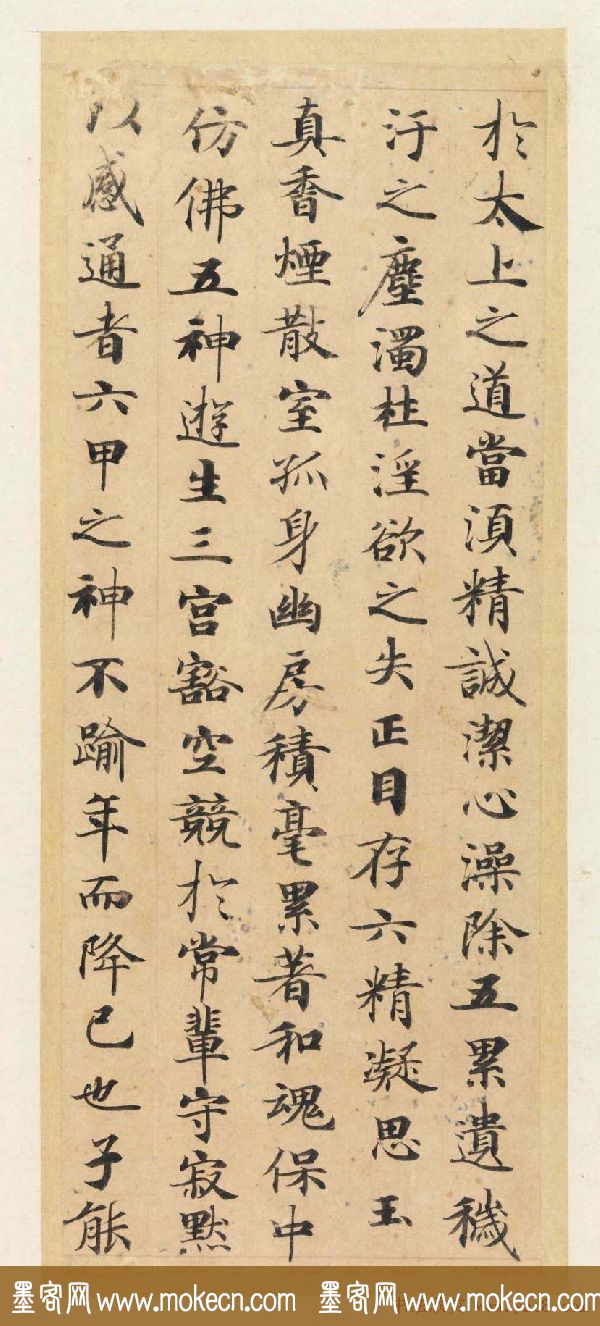 於太上之道當湏精誠潔心澡除五累遺穢
汙之塵濁杜淫欲之失正目存六精凝思玉
真香煙散室孤身幽房積毫累著和魂保中
仿佛五神遊生三宮豁空競於常輩守寂默
以感通者六甲之神不踰年而降己也子能
墨客网 www.mokecn.com 墨客网 www.mokecn.com